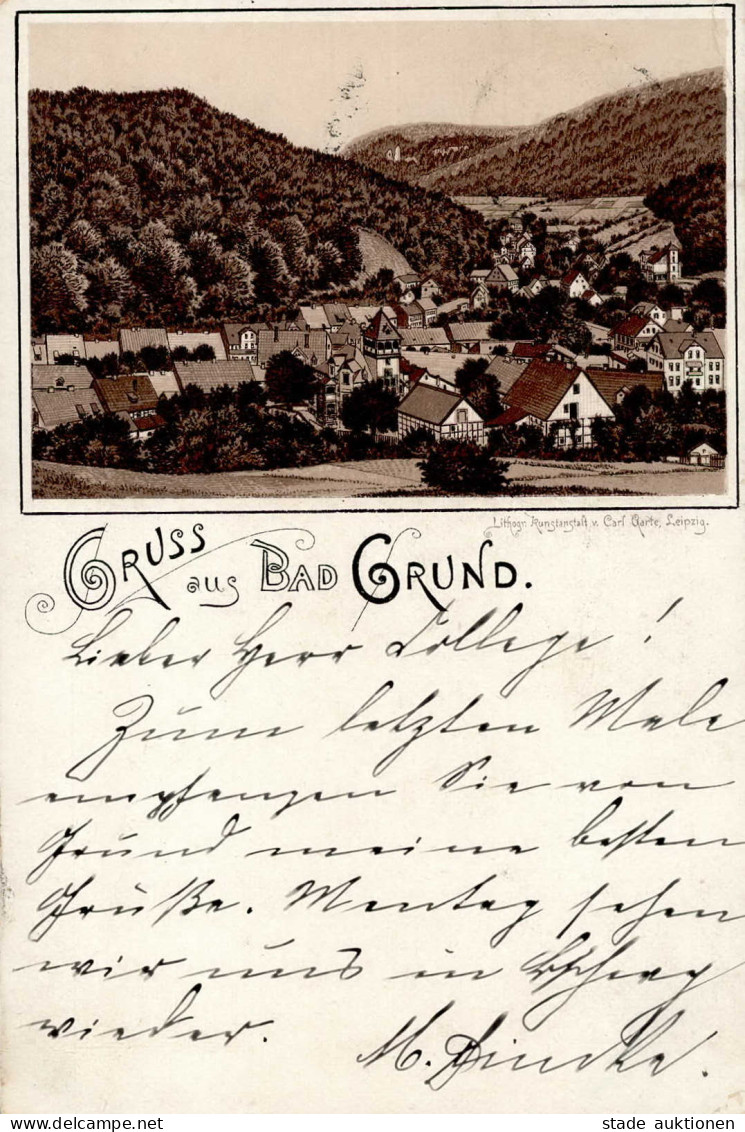 Lithogr. Kunstanstalt v. Carl Garte, Leipzig.
GRUSS aus BAD GRUND.
Lieber Herr College!
Zum letzten Male
empfangen Sie von
Grund meine besten
Grüße. Montag sehen
wir uns in
wieder. M.
stade auktionen